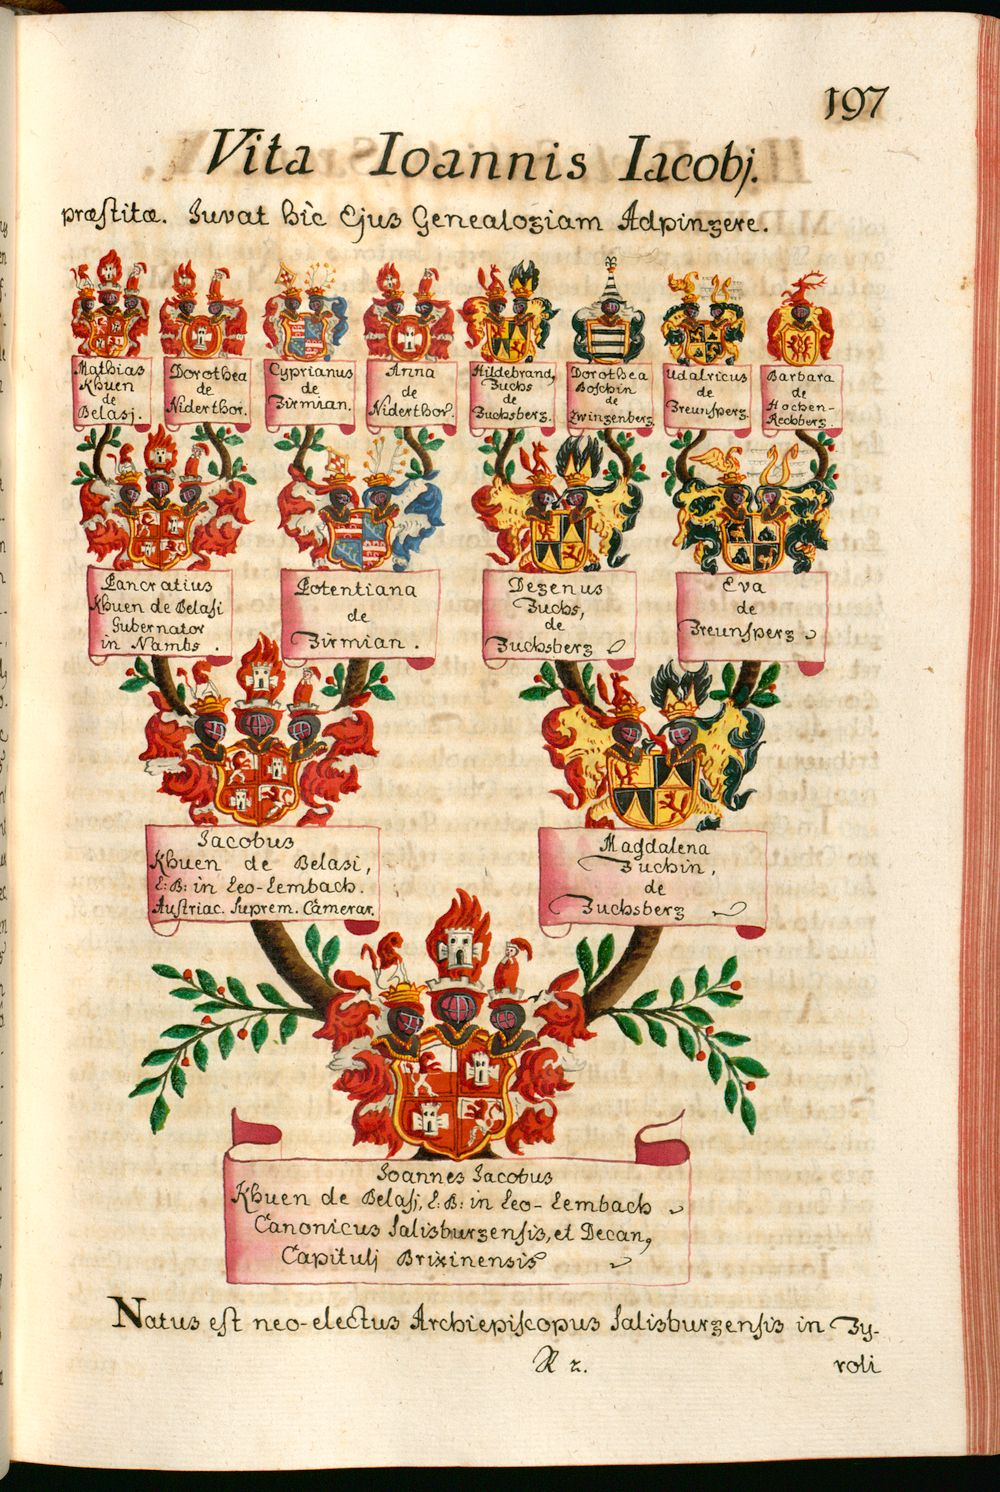 197
Vita Ioannis Iacobj.
præſtitæ. Iuvat hìc Ejus Genealogiam Adpingere.
Mathias
Khuen
de
Belasj.
Dorothea
de
Niderthor.
Cyprianus
de
Firmian.
Anna
de
Niderthor.
Hildebrand,
Fuchs
de
Fuchsberg.
Dorothea
Boſchin
de
Zwingenberg.
Udalricus
de
Freunſperg.
Barbara
de
Hochen-
Rechberg.
Pancratius
Khuen de Belaſi
Gubernator
in Nambs.
Potentiana
de
Firmian.
Degenus
Fuchs,
de
Fuchsberg
Eva
de
Freunſperg
Jacobus
Khuen de Belasi,
L: B: in Leo-Lembach.
Austriac. Suprem. Camerar.
Magdalena
Fuchin,
de
Fuchsberg
Joannes Jacobus
Khuen de Belaſj, L: B: in Leo-Lembach
Canonicus Salisburgenſis, et Decan,
Capitulj Brixinensis
Natus eſt neo-electus Archiepiſcopus Salisburgenſis in Ty-
R 2.
roli